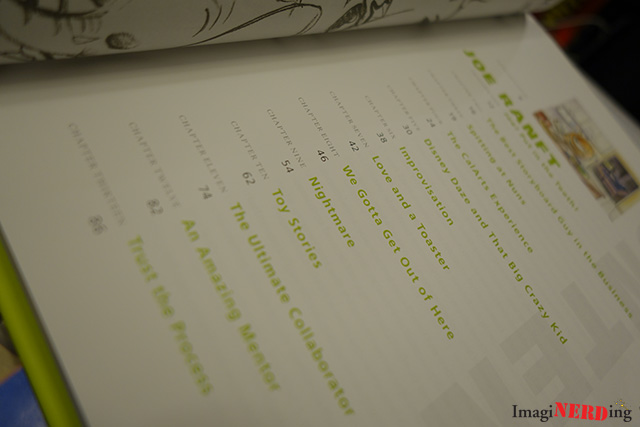 JOE RANFT
The Best Storyboard Guy in the Business
at Nuns
24 The CalArts Experience
30 Disney Daze and That Big Crazy Kid
38 Improvisation
CHAPTER SEVEN 42 Love and a Toaster
CHAPTER EIGHT 46 We Gotta Get Out of Here
CHAPTER NINE 54 Nightmare
CHAPTER TEN 62 Toy Stories
CHAPTER ELEVEN 74 The Ultimate Collaborator
CHAPTER TWELVE 82 An Amazing Mentor
CHAPTER THIRTEEN 86 Trust the Process
ImagiNERDing